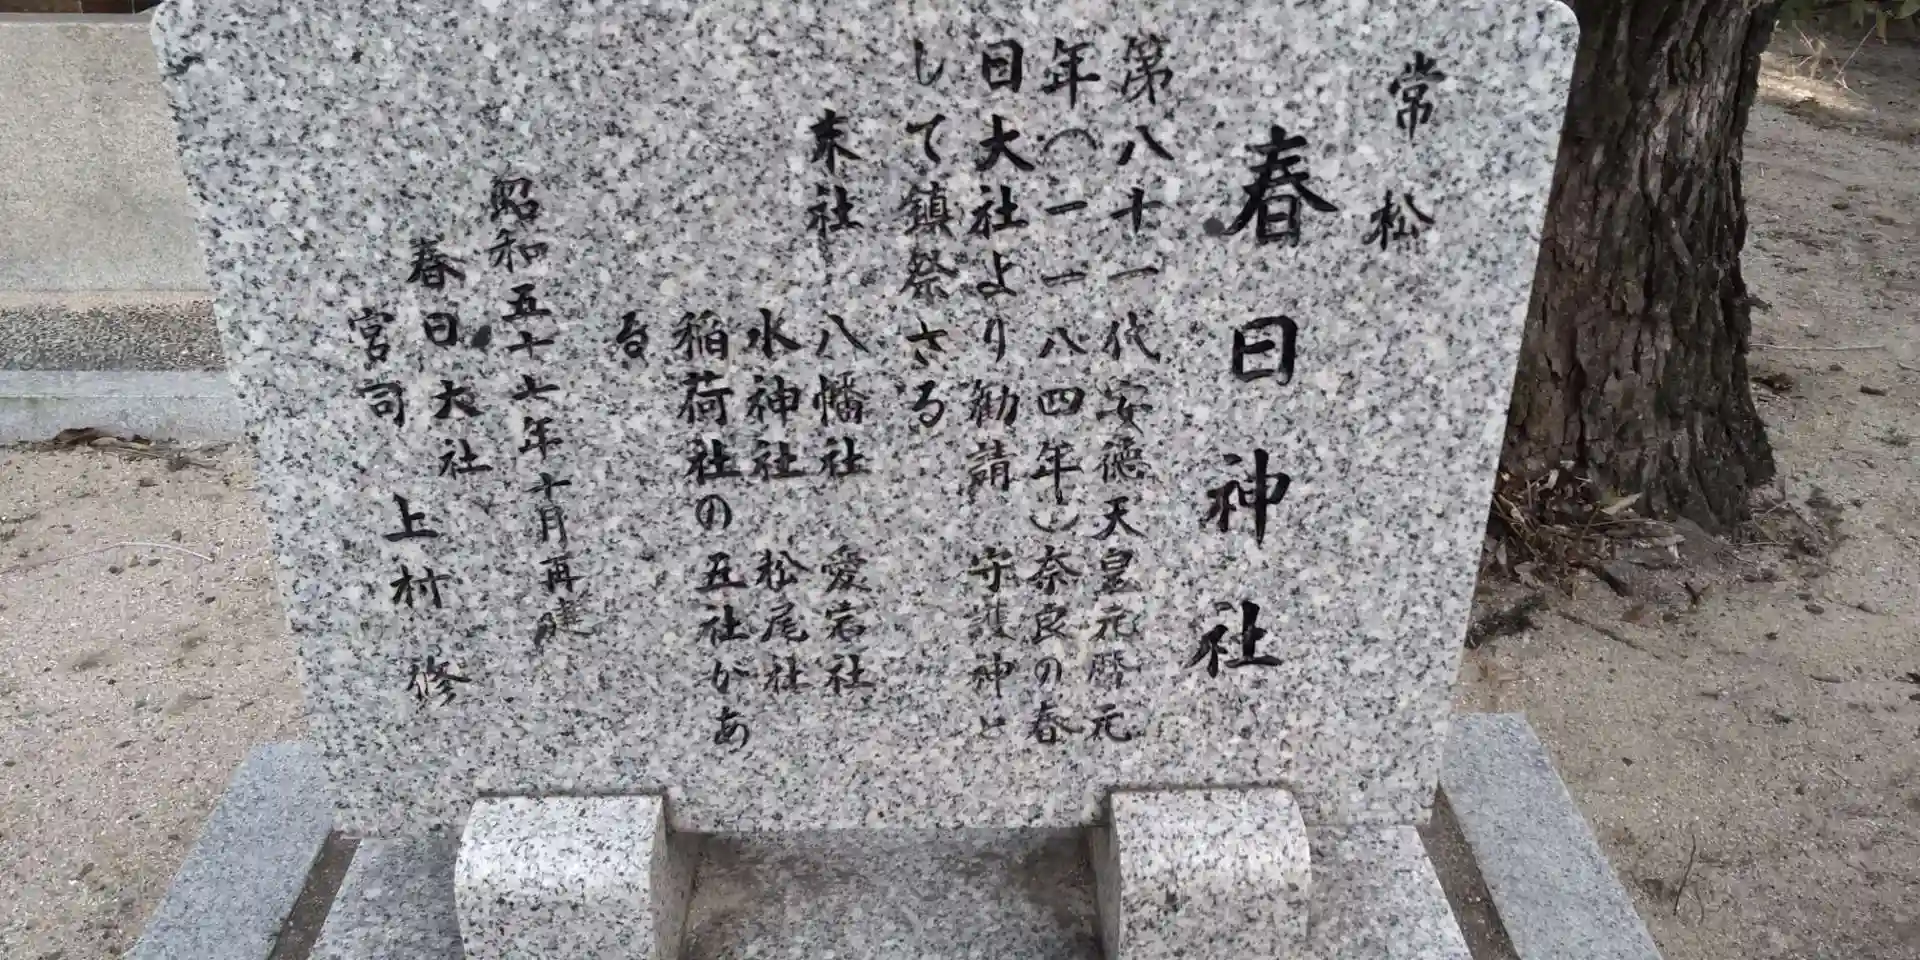 常松
春日神社
第八十一代安徳天皇元暦元
年(一一八四年)奈良の春
日大社より勧請 守護神と
して鎮祭さる
末社 八幡社 愛宕社
水神社 松尾社
稲荷社の五社があ
る
昭和五十七年十月再建
春日大社
宮司 上村 修